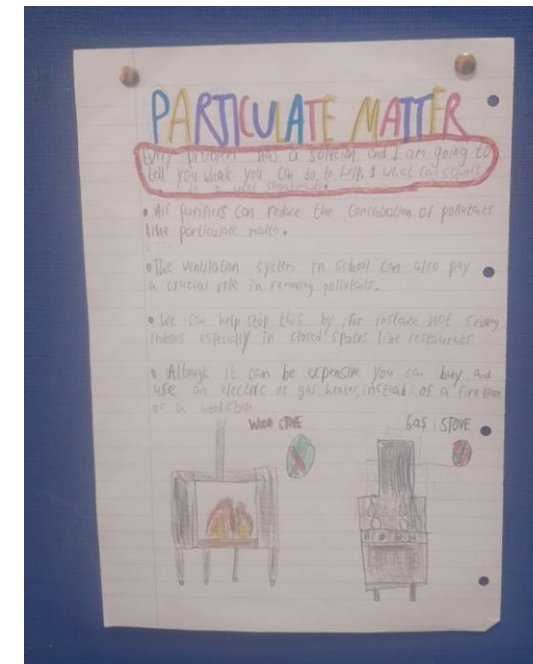 PARTICULATE MATTER
Every problem has a solution and I am going to
tell you what you can do, to help, & what can schools
• Air purifiers can reduce the concentration of pollutants
like particulate matter.
• The ventilation system in school can also pay
a crucial role in removing pollutants.
• We can help stop this by, for instance not
indoors especially in closed spaces like restaurants
• Altough it can be expensive you can buy and
use an electric or gas heater, instead of a fire place
or a wood stove
WOOD STOVE
GAS STOVE